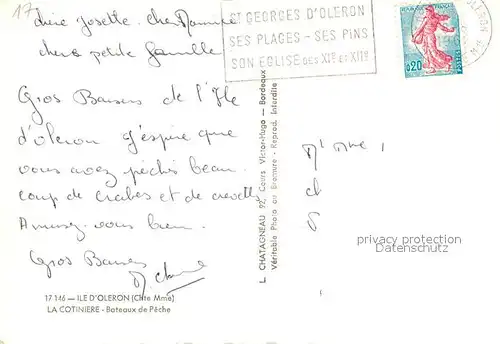 17
chère Josette. cher Maurice
chère petite famille
Gros Baisers de l'Ile
d'oleron j'espère que
vous avez pêchés beau
coup de crabes et de crevettes
Amusez-vous bien.
Gros Baisers
17 146 — ILE D'OLERON (Chte Mme)
LA COTINIERE - Bateaux de Pêche
ST GEORGES D'OLERON
SES PLAGES - SES PINS
SON EGLISE DES XIe ET XIIe
0,20
POSTES
OLERON
L. CHATAGNEAU 92, Cours Victor-Hugo — Bordeaux
Véritable Photo au Bromure - Reprod. Interdite
privacy protection
Datenschutz